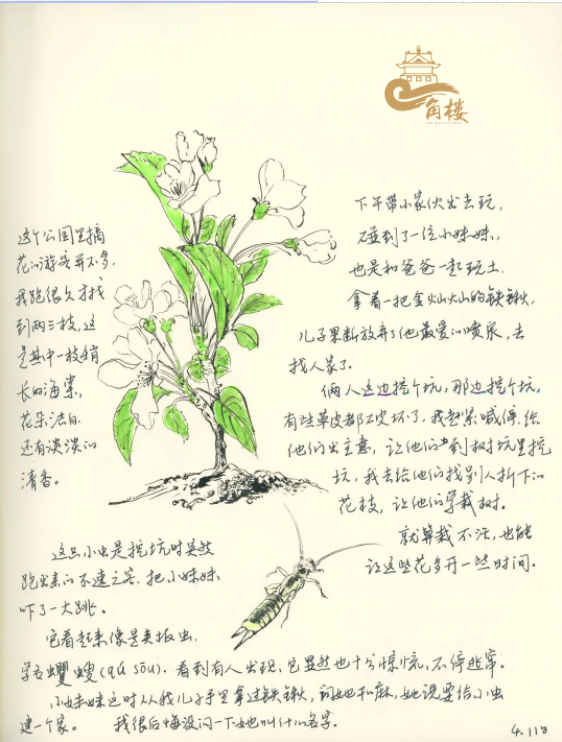 角楼
下午带小家伙出去玩,
碰到了一位小妹妹,
也是和爸爸一起玩土.
拿着一把金灿灿的铁锹,
儿子果断放弃了他最爱的喷泉,去
找人家了.
俩人这边挖个坑,那边挖个坑,
有些草皮都破坏了,我赶紧喊停,给
他们出主意,让他们到树坑里挖
坑,我去给他们找别人折下的
花枝,让他们学栽树.
就算栽不活,也能
让这些花多开一些时间.
这个公园里摘
花的游客并不多,
我跑很久才找
到两三枝,这
是其中一枝稍
长的海棠,
花朵洁白.
还有淡淡的
清香。
这只小虫是挖坑时突然
跑出来的不速之客,把小妹妹
吓了一大跳.
它看起来像是夹板虫,
学名蠼螋(qú sōu).看到有人出现,它显然也十分惊慌,不停逃窜。
小妹妹这时从我儿子手里拿过铁锹,问她干嘛,她说要给小虫
建一个家。 我很后悔没问一下她叫什么名字.
4.11日